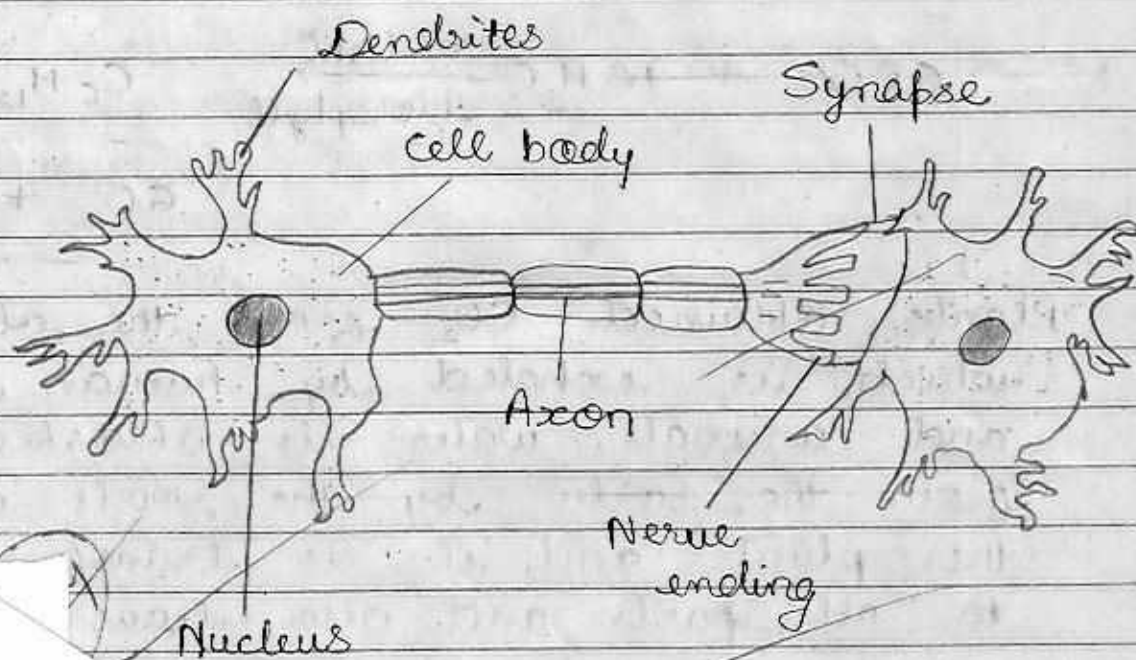 Dendrites
Synapse
Cell body
Axon
Nerve
ending
Nucleus